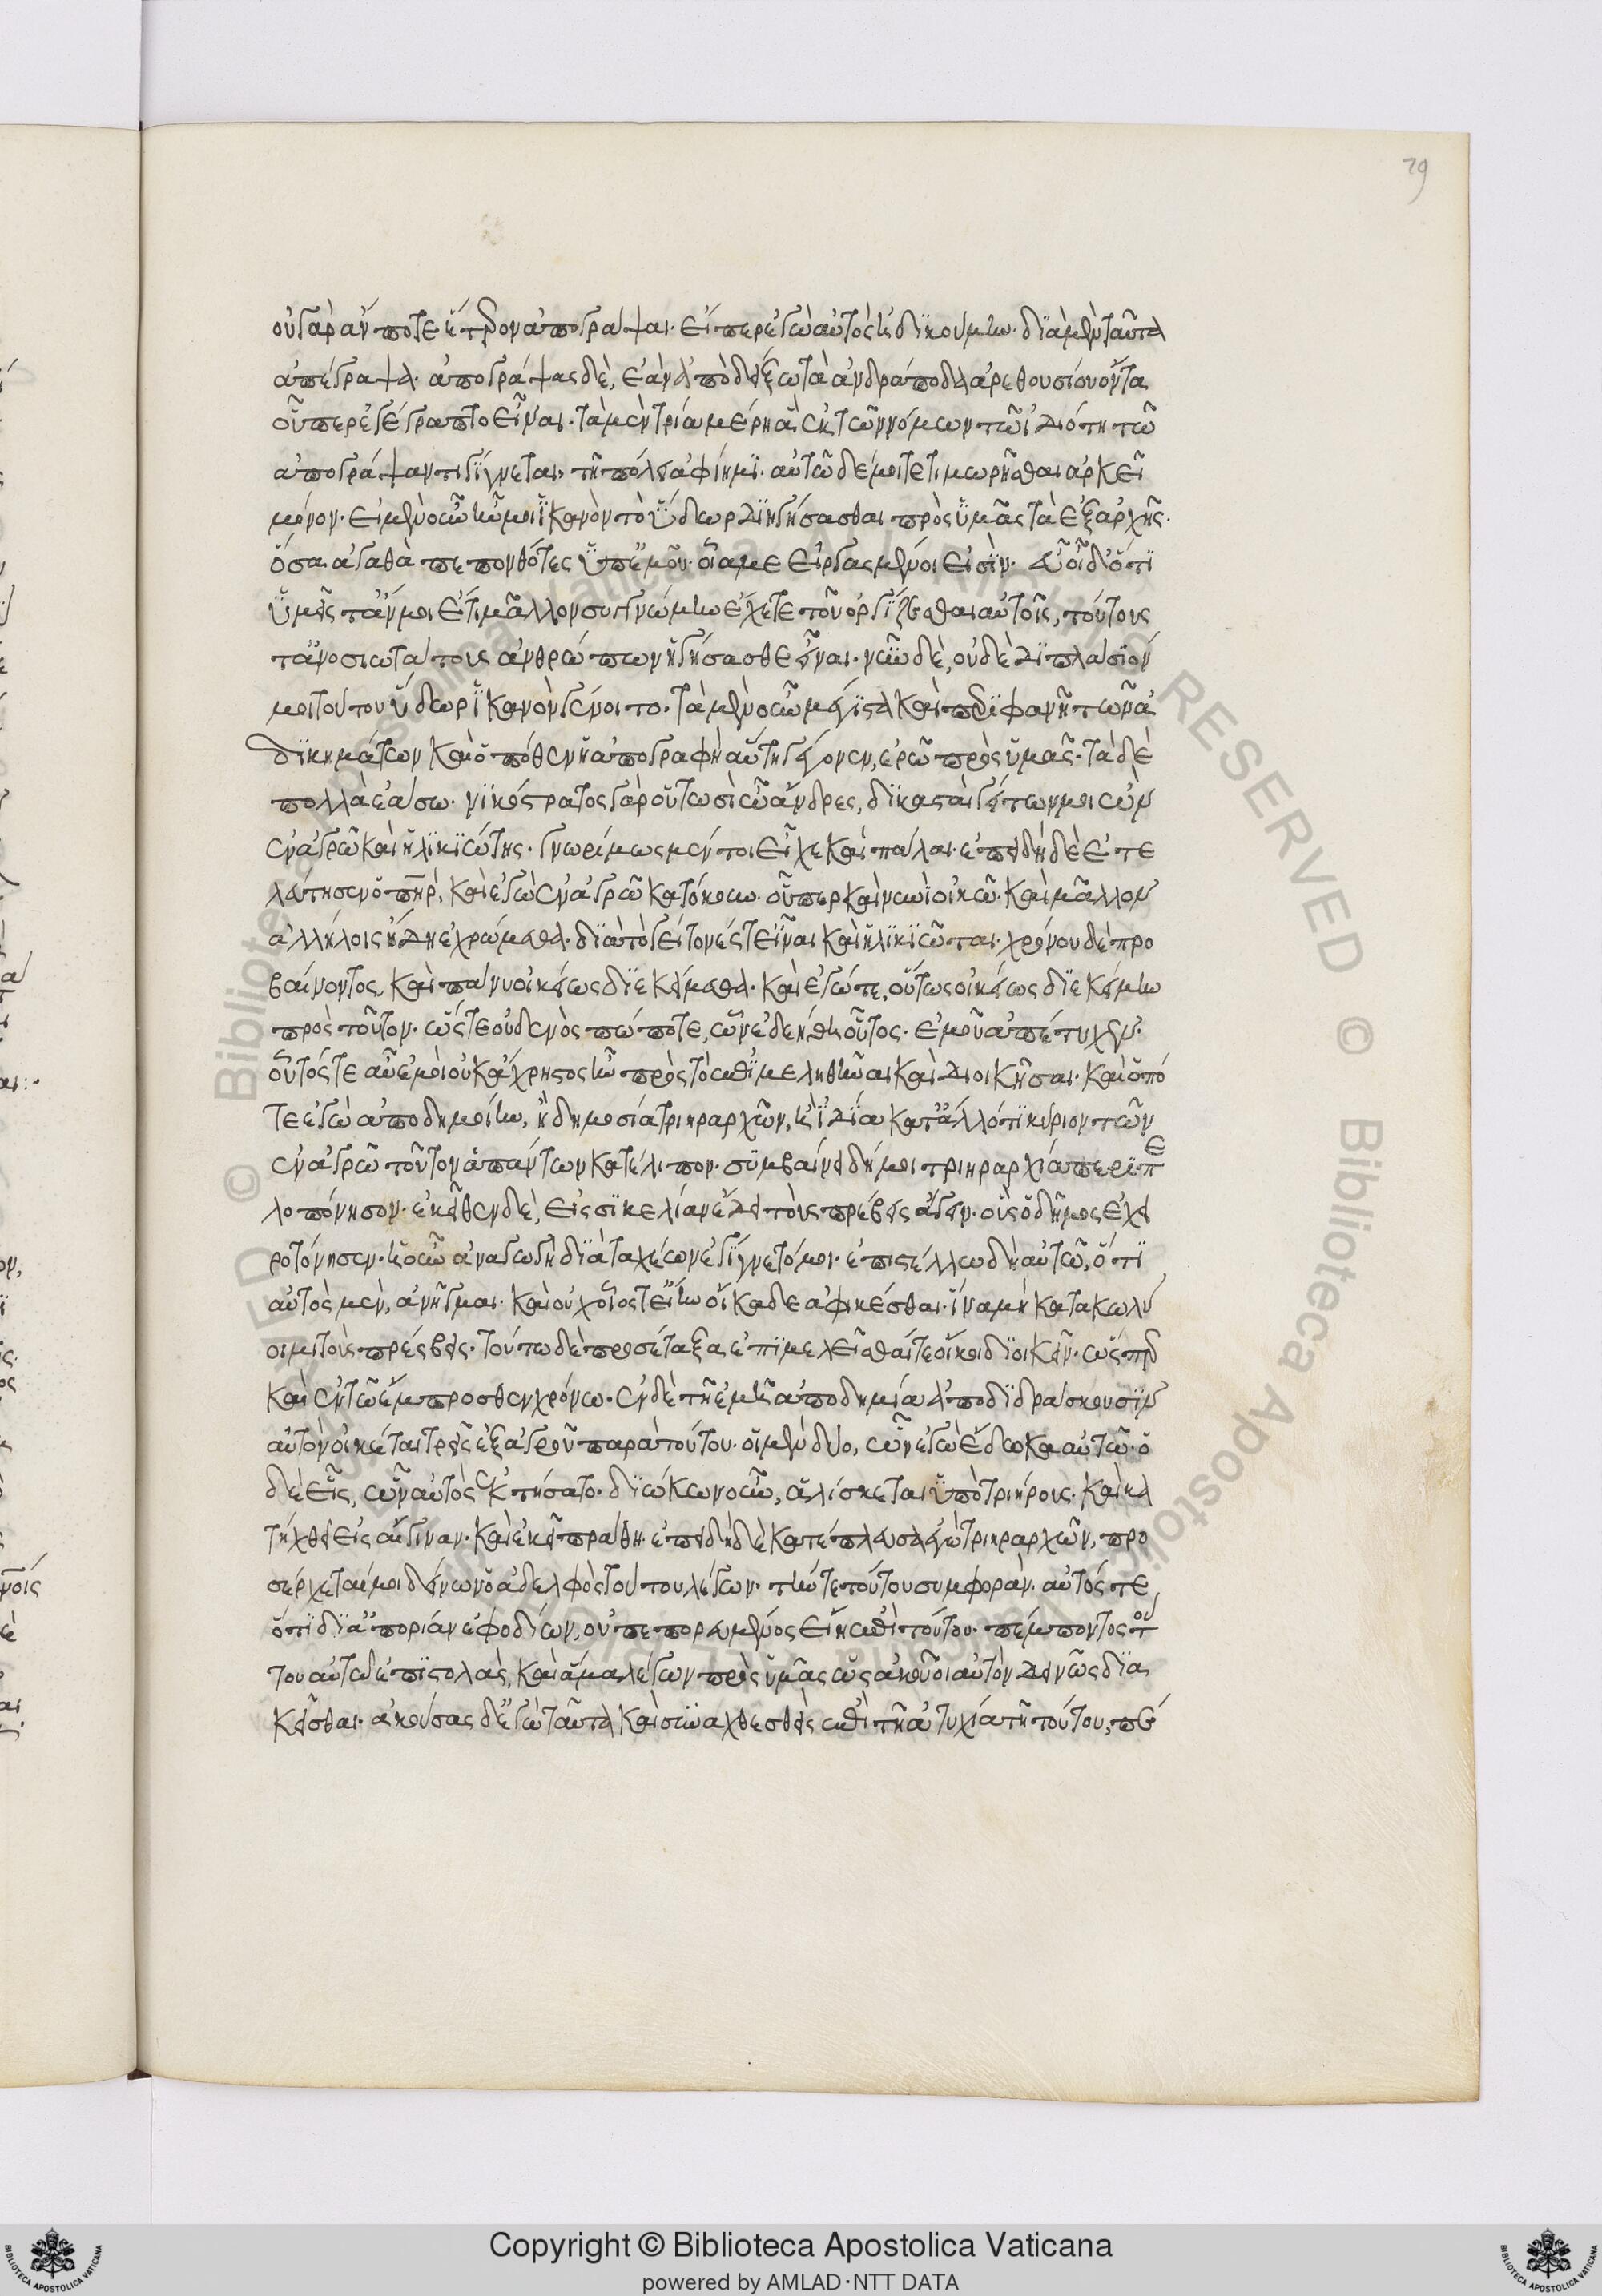 79
οὐ γὰρ ἄν ποτε ἕτερον ἀπογράψαι· εἴπερ ἐγὼ αὐτὸς ἠδικούμην· διὰ μὲν ταῦτα
ἀπέγραψα· ἀπογράψας δὲ, ἐὰν ἀποδείξω τὰ ἀνδράποδα ἀρεθουσίου ὄντα
οὗπερ ἐγέγραπτο εἶναι· τὰ μὲν τρία μέρη ἃ ἐκ τῶν νόμων τῶ ἰδιώτη τῶ
ἀπογράψαντι γίγνεται, τῆ πόλει ἀφίημι· αὐτῶ δέ μοι τετιμωρῆσθαι ἀρκεῖ
μόνον· εἰ μὲν οὖν ἦν μοι ἱκανὸν τὸ ὕδωρ διηγήσασθαι πρὸς ὑμᾶς τὰ ἐξ ἀρχῆς·
ὅσα ἀγαθὰ πεπονθότες ὑπ' ἐμοῦ· οἷά με εἰργασμένοι εἰσὶν· εὖ οἶδ' ὅτι
ὑμεῖς τ' ἄν μοι ἔτι μᾶλλον συγγνώμην ἔχετε τοῦ ὀργίζεσθαι αὐτοῖς, τούτους
τ' ἀνοσιωτάτους ἀνθρώπων ἡγήσασθε εἶναι· νῦν δὲ, οὐδὲ διπλάσιόν
μοι τούτου ὕδωρ ἱκανὸν γένοιτο· τὰ μὲν οὖν μέγιστα καὶ περιφανῆ τῶν ἀ
δικημάτων καὶ ὁπόθεν ἡ ἀπογραφὴ αὕτη γέγονεν, ἐρῶ πρὸς ὑμᾶς· τὰ δὲ
πολλὰ ἐάσω· νικόστρατος γὰρ οὑτωσὶ ὦ ἄνδρες, δικασταὶ γείτων μοι ὢν
ἐν ἀγρῶ καὶ ἡλικιώτης· γνωρίμως μέν τοι εἶχε καὶ πάλαι· ἐπειδὴ δὲ ἐτε
λεύτησεν ὁ πηρ, καὶ ἐγὼ ἐν ἀγρῶ κατώκουν· οὗπερ καὶ νῦν οἰκῶ· καὶ μᾶλλον
ἀλλήλοις ἤδη ἐχρώμεθα· διὰ τὸ γείτονές τε εἶναι καὶ ἡλικιῶται· χρόνου δὲ προ
βαίνοντος, καὶ πάνυ οἰκείως διεκείμεθα· καὶ ἐγώ τε, οὕτως οἰκείως διεκείμην
πρὸς τοῦτον· ὥστε οὐδενὸς πώποτε, ὧν ἐδεήθη οὗτος· ἐμοῦ ἀπέτυχεν·
οὗτός τε αὖ ἐμοὶ οὐκ ἄχρηστος ἦν πρὸς τὸ ἐπιμεληθῆναι καὶ διοικῆσαι· καὶ ὁπό
τε ἐγὼ ἀποδημοίην, ἢ δημοσία τριηραρχῶν, ἢ ἰδία κατ' ἄλλό τι κύριον τῶν
ἐν ἀγρῶ τοῦτον ἁπάντων κατέλιπον· συμβαίνει δή μοι τριηραρχία περὶ πε
λοπόννησον· ἐκεῖθεν δὲ, εἰς σικελίαν ἔδει τοὺς πρέσβεις ἄγειν· οὓς ὁ δῆμος ἐχει
ροτόνησεν· ἡ οὖν ἀναγωγὴ διὰ ταχέων ἐγίγνετό μοι· ἐπιστέλλω δὴ αὐτῶ, ὅτι
αὐτὸς μὲν, ἀνῆγμαι· καὶ οὐχ οἷός τε εἴην οἴκαδε ἀφικέσθαι· ἵνα μὴ κατακωλύ
οιμι τοὺς πρέσβεις· τούτω δὲ προσέταξα ἐπιμελεῖσθαί τε οἴκοι διοικεῖν· ὥσπερ
καὶ ἐν τῶ ἔμπροσθεν χρόνω· ἐν δὲ τῆ ἐμῆ ἀποδημία ἀποδιδράσκουσιν
αὐτὸν οἰκέται τρεῖς ἐξ ἀγροῦ παρὰ τούτου· οἱ μὲν δύο, ὧν ἐγὼ ἔδωκα αὐτῶ· ὁ
δὲ εἷς, ὧν αὐτὸς ἐκτήσατο· διώκων οὖν, ἁλίσκεται ὑπὸ τριήρους· καὶ κα
τήχθη εἰς αἴγιναν· καὶ ἐκεῖ ἐπράθη· ἐπειδὴ δὲ κατέπλευσα ἐγὼ τριηραρχῶν, προ
σέρχεταί μοι δείνων ὁ ἀδελφὸς τούτου λέγων· τήν τε τούτου συμφοράν· αὐτός τε
ὅτι δι' ἀπορίαν ἐφοδίων, οὐ πεπορευμένος εἴη ἐπὶ τοῦτον· πέμποντος τού
του αὐτῶ ἐπιστολὰς, καὶ ἅμα λέγων πρὸς ὑμᾶς ὡς ἀκούοι αὐτὸν δεινῶς δια
κεῖσθαι· ἀκούσας δ' ἐγὼ ταῦτα καὶ συναχθεσθεὶς ἐπὶ τῆ ἀτυχία τῆ τούτου,
Copyright © Biblioteca Apostolica Vaticana
powered by AMLAD·NTT DATA